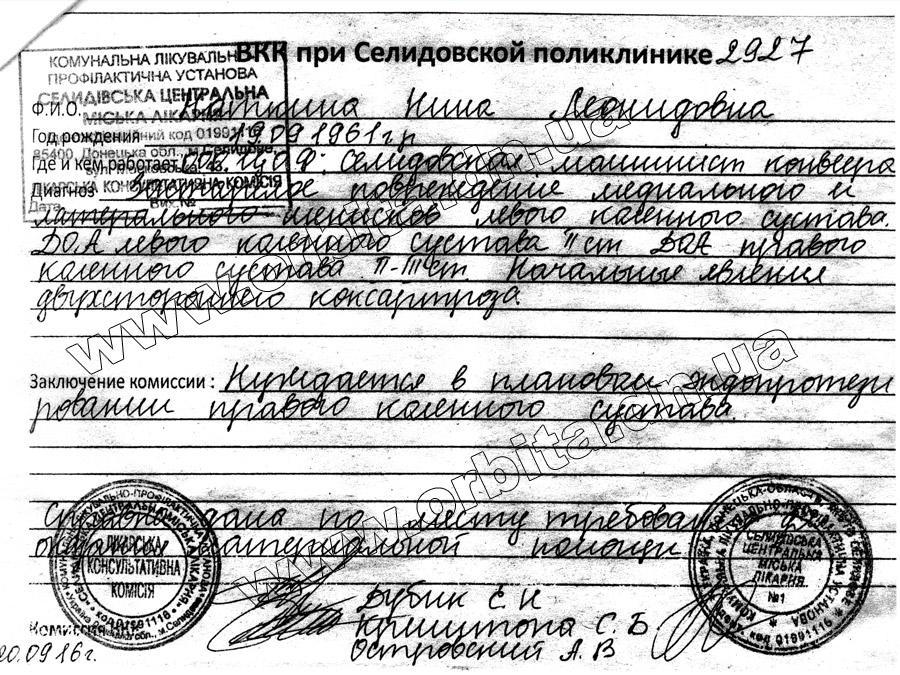 КОМУНАЛЬНА ЛІКУВАЛЬНО
ПРОФІЛАКТИЧНА УСТАНОВА
СЕЛИДІВСЬКА ЦЕНТРАЛЬНА
МІСЬКА ЛІКАРНЯ
код 01991116
85400, Донецька обл., м.Селидове,
ЛІКАРСЬКА КОНСУЛЬТАТИВНА КОМІСІЯ
Дата Вих.№
ВКК при Селидовской поликлинике 2927
Ф.И.О. Нина Леонидовна
Год рождения 19 09 1961г.р
Где и кем работает Селидовская машинист конвеера
Диагноз повреждение медиального и
латерального менисков левого коленного сустава.
ДОА левого коленного сустава II ст ДОА правого
коленного сустава II-III ст. Начальные явления
двухстороннего коксартроза
Заключение комиссии : Нуждается в плановом эндопротези
ровании правого коленного сустава.
Справка дана по месту требования для
оказания материальной помощи
ЛІКАРСЬКА
КОНСУЛЬТАТИВНА
КОМІСІЯ
СЕЛИДІВСЬКА
ЦЕНТРАЛЬНА
МІСЬКА
ЛІКАРНЯ
№1
Бубик Е Н
Комиссия Криштопа С. Б.
20.09.16г. Островский А. В
www.orbita.dn.ua
www.orbita.dn.ua